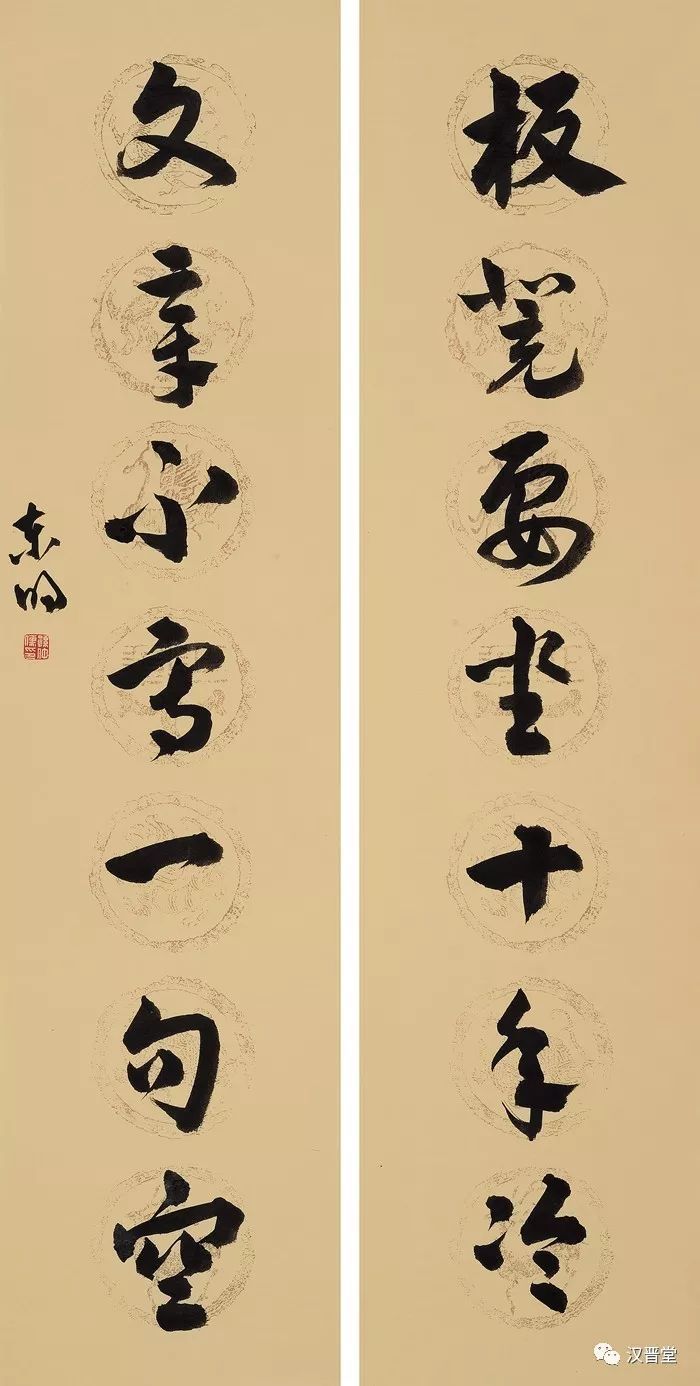 板凳要坐十年冷
文章不写一句空
东明
汉晋堂